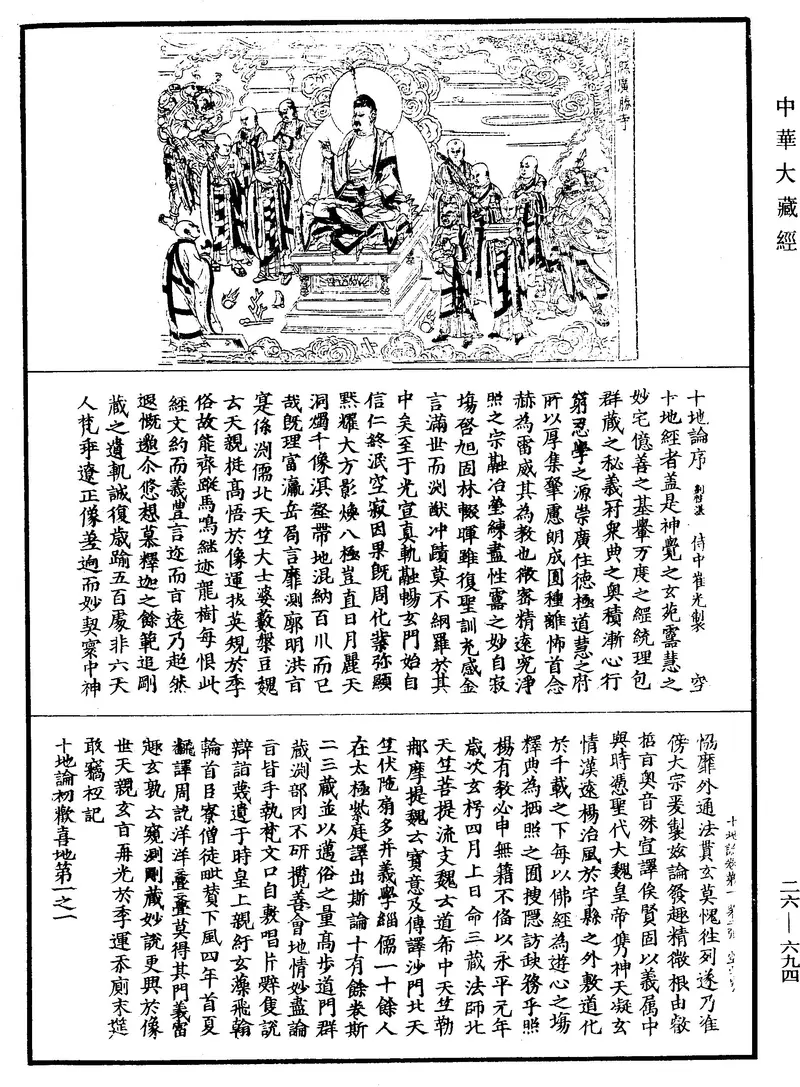 中華大藏經
二六—六九四
廣勝寺
十地論序 侍中崔光製 空
十地經者盖是神覺之玄苑靈慧之
妙宅億善之基轝万度之綱統理包
群藏之秘義冠衆典之奥積漸心行
窮忍學之源崇廣住德極道慧之府
所以厚集肇慮朗成圓種離怖首念
赫為雷威其為教也微密精遠究淨
照之宗融冶瑩練盡性靈之妙自寂
塲啓旭固林輟暉雖復聖訓充感金
言滿世而渕猷冲賾莫不網羅於其
中矣至于光宣真軌融暢玄門始自
信仁終泯空寂因果既周化業弥顯
黙耀大方影煥八極豈直日月麗天
洞燭千像溟壑帶地混納百川而已
哉既理富瀛岳局言靡測廓明洪旨
寔係渕儒北天竺大士婆藪槃豆魏
云天親挺髙悟於像運拔英規於季
俗故能齊蹤馬鳴繼迹龍樹每恨此
經文約而義豊言迩而旨遠乃超然
遐慨邈尒悠想慕釋迦之餘範追剛
藏之遺軌誠復歳踰五百處非六天
人梵乖遼正像差逈而妙契寔中神
恊靡外通法貫玄莫愧徃列遂乃准
傍大宗爰製兹論發趣精微根由睿
哲旨奥音殊宣譯俟賢固以義属中
興時憑聖代大魏皇帝儁神天凝玄
情漢遠楊治風於宇縣之外敷道化
於千載之下每以佛經為遊心之塲
釋典為栖照之囿搜隱訪缺務乎照
楊有教必申無籍不俻以永平元年
歳次玄枵四月上日命三藏法師北
天竺菩提流支魏云道希中天竺勒
那摩提魏云寶意及傳譯沙門北天
竺伏陁扇多并義學緇儒一十餘人
在太極紫庭譯出斯論十有餘卷斯
二三藏並以邁俗之量髙步道門群
藏渕部罔不研攬善會地情妙盡論
旨皆手執梵文口自敷唱片辭隻説
辯詣蔑遺于時皇上親紆玄藻飛翰
輪首臣寮僧徒毗賛下風四年首夏
飜譯周訖洋洋亹亹莫得其門義富
趣玄孰云窺測剛藏妙說更興於像
世天親玄旨再光於季運忝廁末筵
敢竊祗記
十地論初歡喜地第一之一